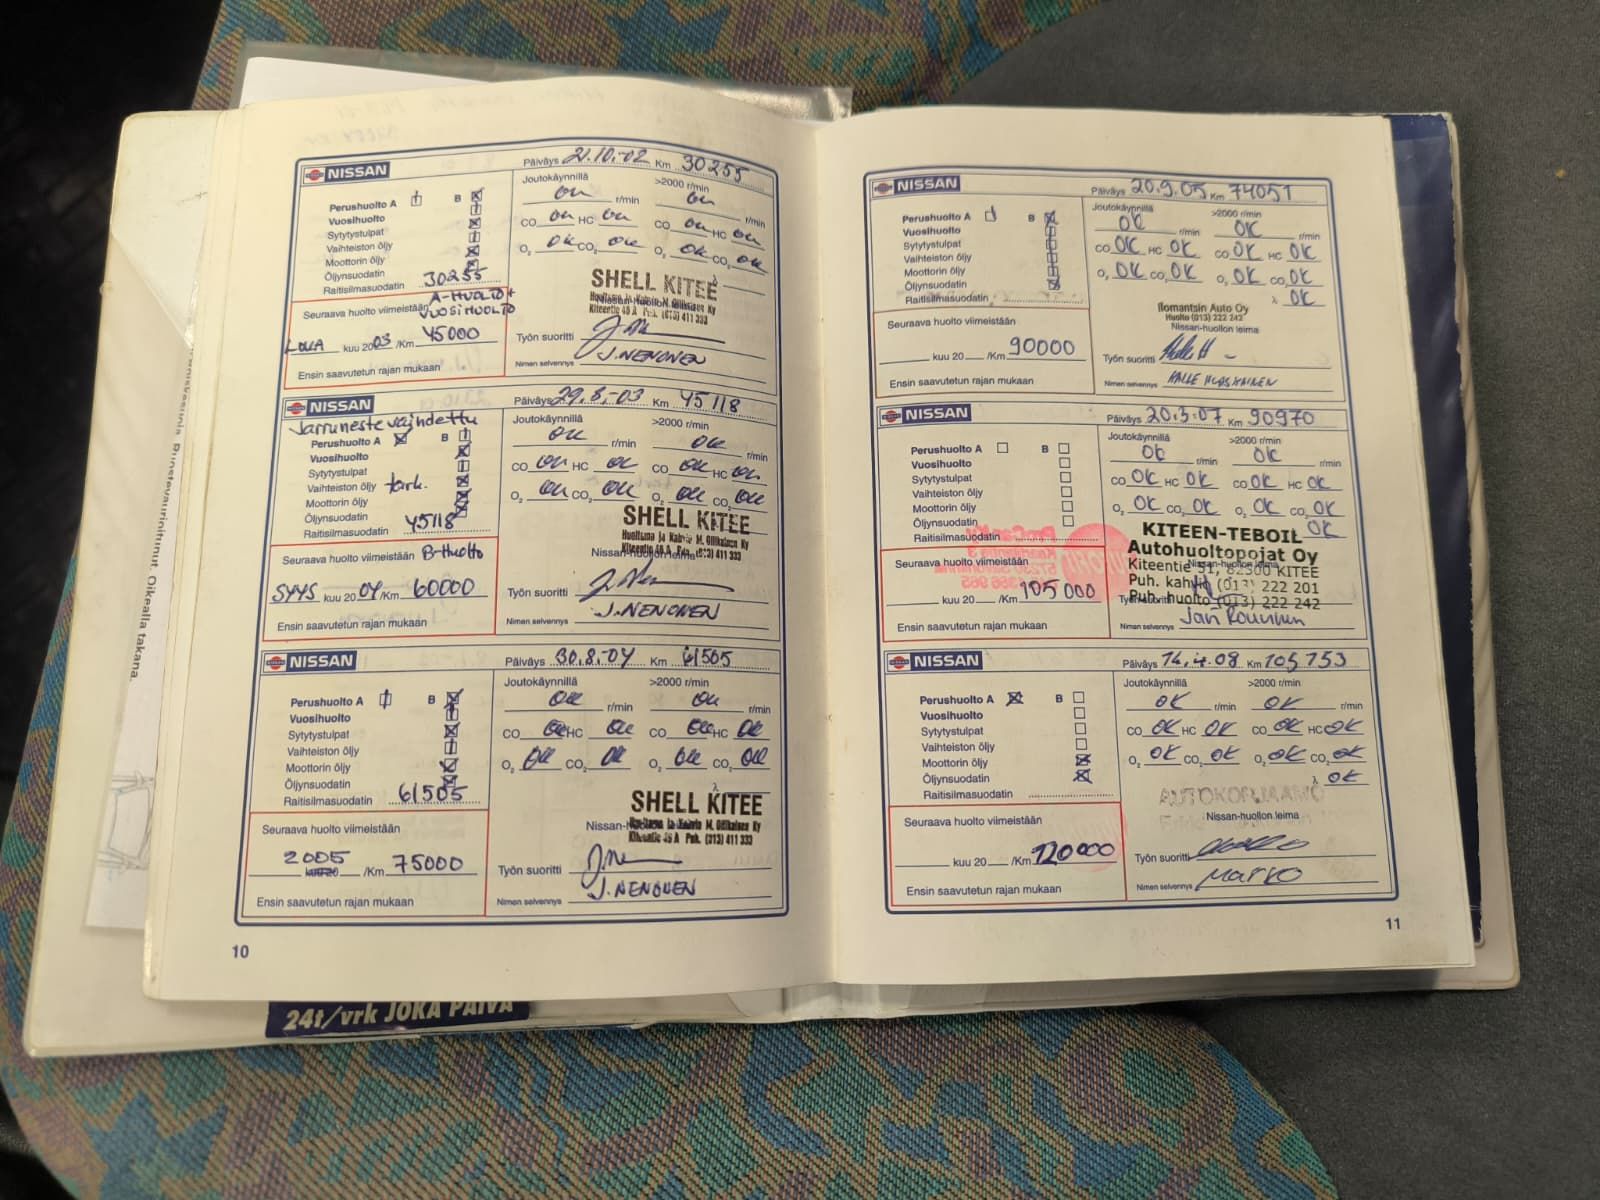 NISSAN
Päiväys 21.10.-02 Km 30255
Perushuolto A B
Vuosihuolto
Sytytystulpat
Vaihteiston öljy
Moottorin öljy
Öljynsuodatin
Raitisilmasuodatin 30255
Joutokäynnillä >2000 r/min
r/min r/min
CO HC CO HC
O₂ CO₂ O₂ CO₂
λ
SHELL KITEE
Nissan-huollon leima
Kiteentie 46 A Puh. (013) 411 333
Seuraava huolto viimeistään A-HUOLTO + VUOSIHUOLTO
LOKA kuu 2003 /Km 45000
Ensin saavutetun rajan mukaan
Työn suoritti
Nimen selvennys J. NENONEN
NISSAN
Päiväys 29.8.-03 Km 45118
Jarruneste vaihdettu
Perushuolto A B
Vuosihuolto
Sytytystulpat
Vaihteiston öljy tark.
Moottorin öljy
Öljynsuodatin
Raitisilmasuodatin 45118
Joutokäynnillä >2000 r/min
r/min r/min
CO HC CO HC
O₂ CO₂ O₂ CO₂
SHELL KITEE
Huoltamo ja Kahvio M. Ollikainen Ky
Kiteentie 46 A Puh. (013) 411 333
Nissan-huollon leima
Seuraava huolto viimeistään B-Huolto
SYYS kuu 2004 /Km 60000
Ensin saavutetun rajan mukaan
Työn suoritti
Nimen selvennys J. NENONEN
NISSAN
Päiväys 30.8.-04 Km 61505
Perushuolto A B
Vuosihuolto
Sytytystulpat
Vaihteiston öljy
Moottorin öljy
Öljynsuodatin
Raitisilmasuodatin 61505
Joutokäynnillä >2000 r/min
r/min r/min
CO HC CO HC
O₂ CO₂ O₂ CO₂
λ
SHELL KITEE
Huoltamo ja Kahvio M. Ollikainen Ky
Kiteentie 46 A Puh. (013) 411 333
Seuraava huolto viimeistään
2005 kuu 20 /Km 75000
Ensin saavutetun rajan mukaan
Työn suoritti
Nimen selvennys J. NENONEN
10
24t/vrk JOKA PÄIVÄ
NISSAN
Päiväys 20.9.05 Km 74051
Perushuolto A B
Vuosihuolto
Sytytystulpat
Vaihteiston öljy
Moottorin öljy
Öljynsuodatin
Raitisilmasuodatin
Joutokäynnillä >2000 r/min
OK r/min OK r/min
CO OK HC OK CO OK HC OK
O₂ OK CO₂ OK O₂ OK CO₂ OK
λ OK
Ilomantsin Auto Oy
Huolto (013) 222 242
Nissan-huollon leima
Seuraava huolto viimeistään
kuu 20 /Km 90000
Ensin saavutetun rajan mukaan
Työn suoritti
Nimen selvennys
NISSAN
Päiväys 20.3.07 Km 90970
Perushuolto A B
Vuosihuolto
Sytytystulpat
Vaihteiston öljy
Moottorin öljy
Öljynsuodatin
Raitisilmasuodatin
Joutokäynnillä >2000 r/min
OK r/min OK r/min
CO OK HC OK CO OK HC OK
O₂ OK CO₂ OK O₂ OK CO₂ OK
OK
KITEEN-TEBOIL
Autohuoltopojat Oy
Kiteentie 51, 82500 KITEE
Nissan-huollon leima
Puh. kahvio (013) 222 201
Puh. huolto (013) 222 242
Seuraava huolto viimeistään
kuu 20 /Km 105 000
Ensin saavutetun rajan mukaan
Työn suoritti
Nimen selvennys
NISSAN
Päiväys 14.4.08 Km 105 753
Perushuolto A B
Vuosihuolto
Sytytystulpat
Vaihteiston öljy
Moottorin öljy
Öljynsuodatin
Raitisilmasuodatin
Joutokäynnillä >2000 r/min
OK r/min OK r/min
CO OK HC OK CO OK HC OK
O₂ OK CO₂ OK O₂ OK CO₂ OK
λ OK
AUTOKORJAAMO
Nissan-huollon leima
Seuraava huolto viimeistään
kuu 20 /Km 120000
Ensin saavutetun rajan mukaan
Työn suoritti
Nimen selvennys Marko
11
Ruostevaurioitunut. Oikealla takana.